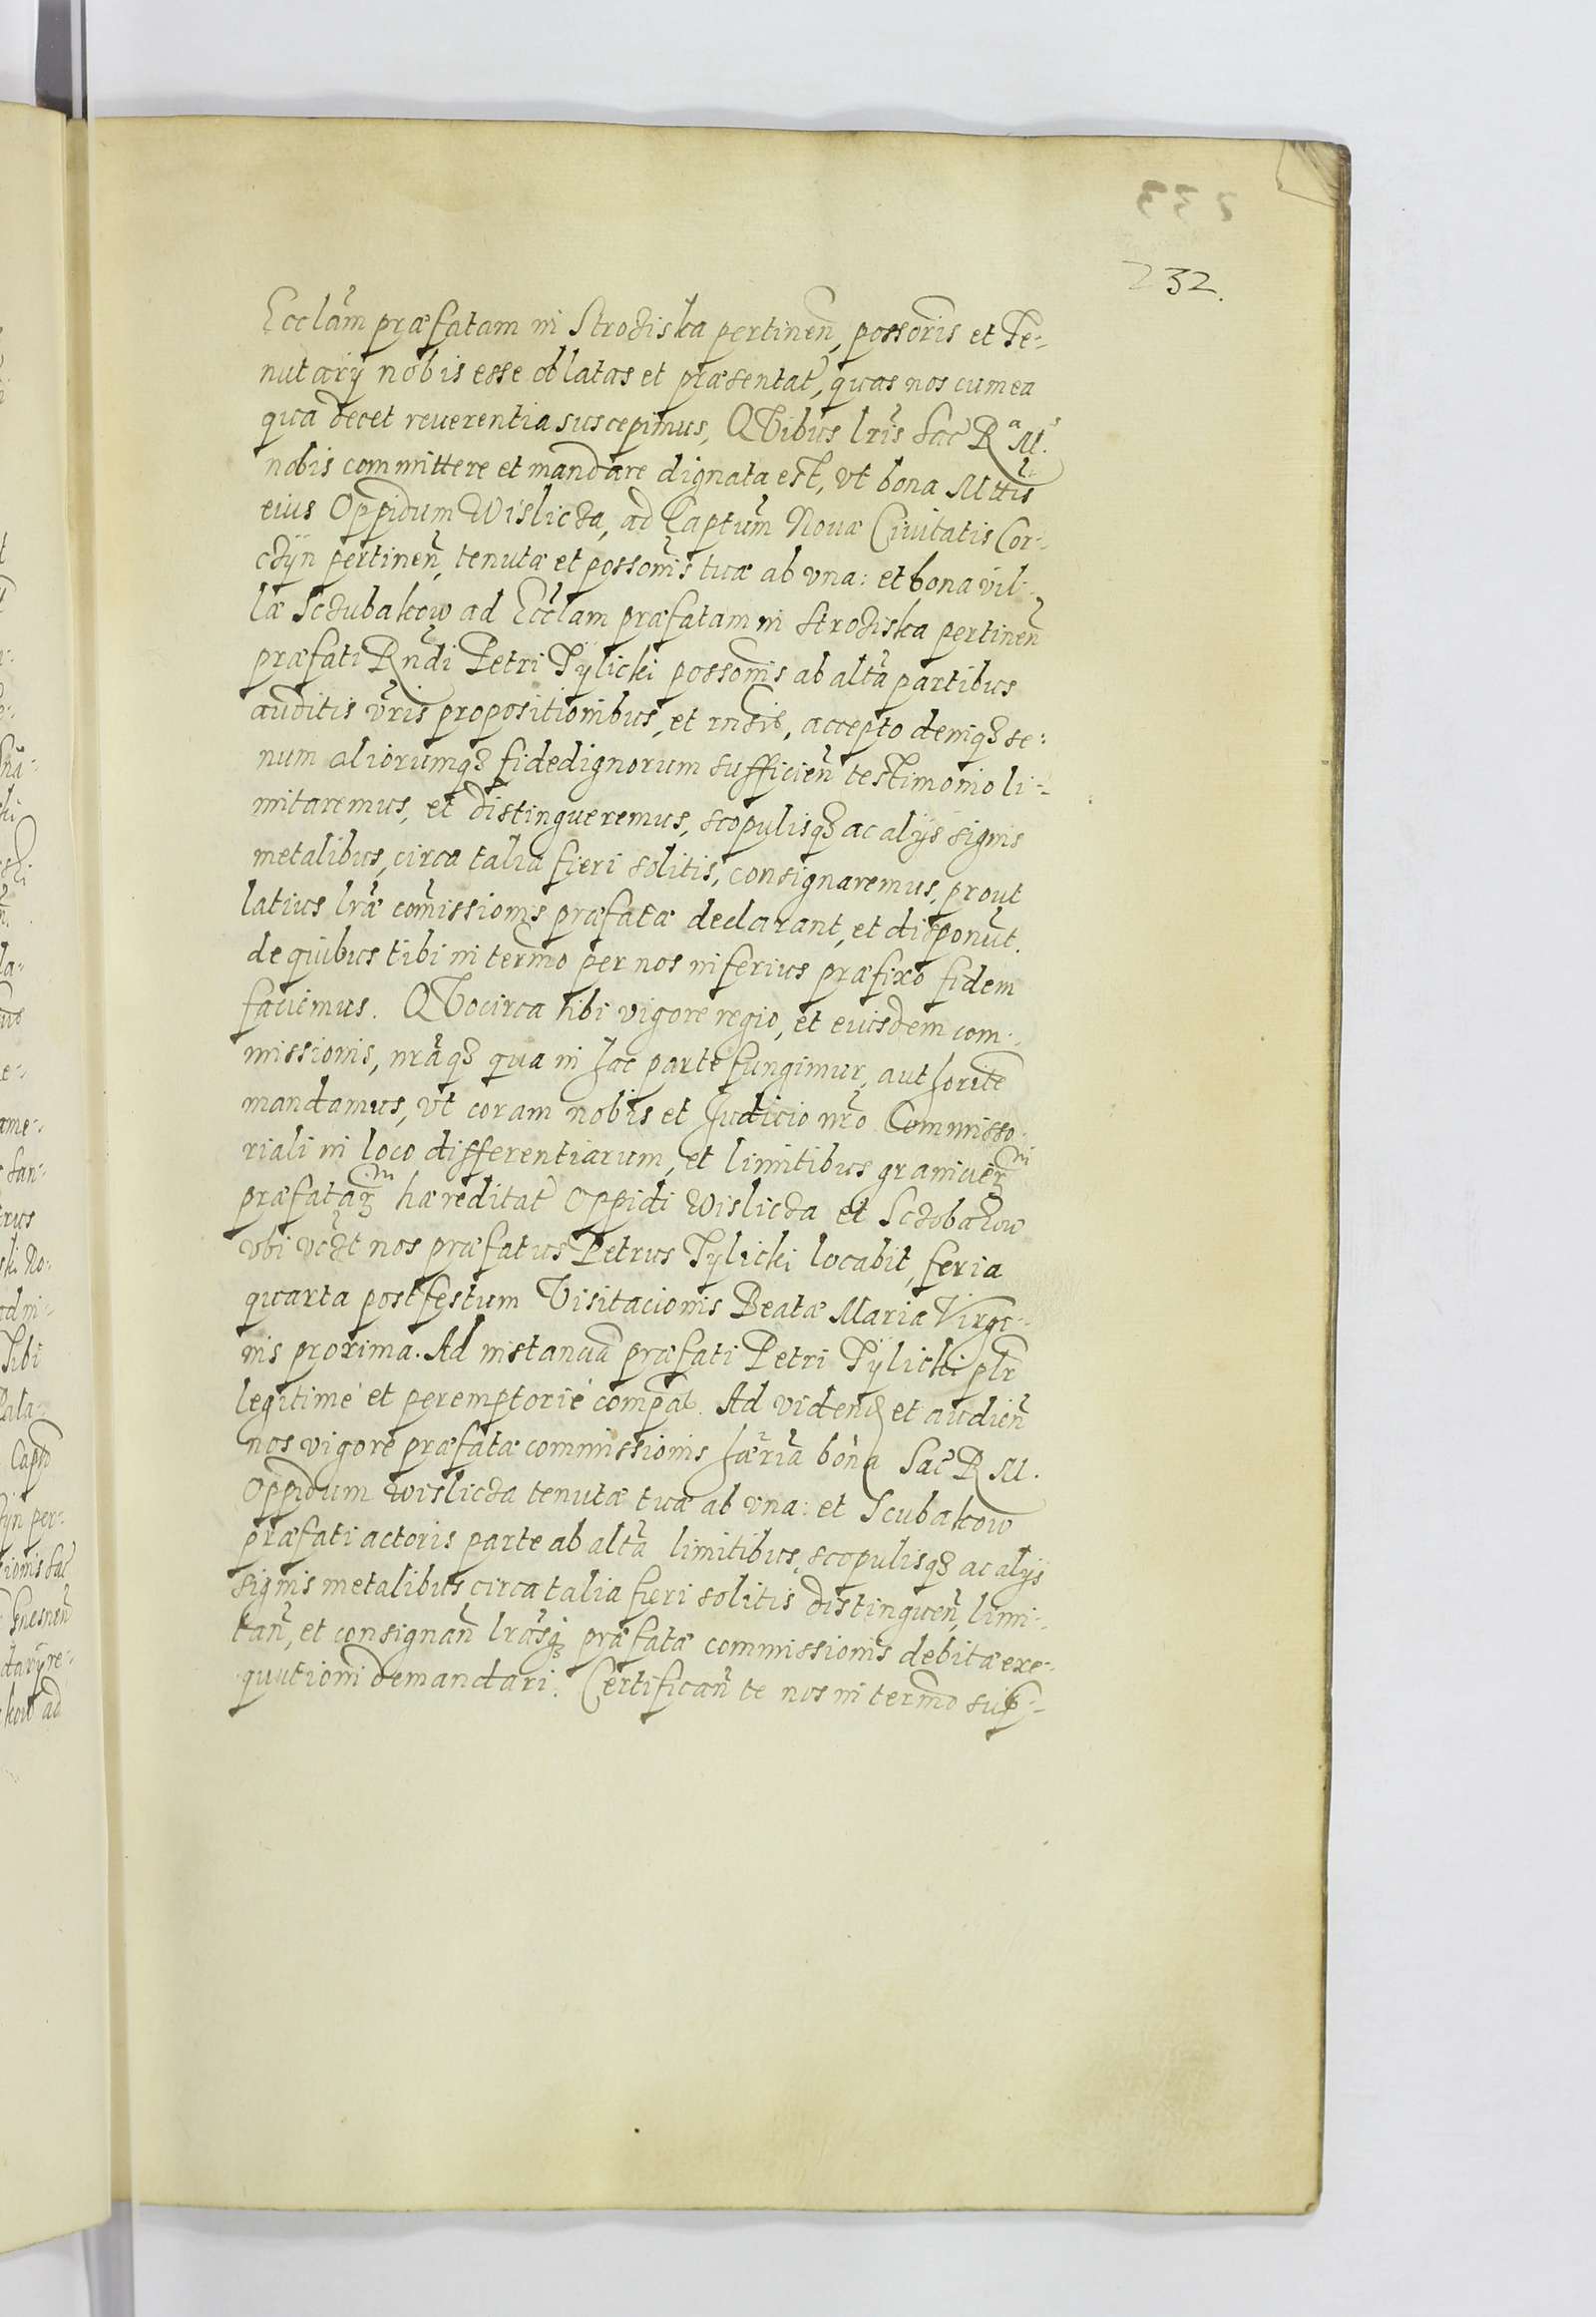 232.
Ecclam præfatam in Stroziska pertinen, possoris et Te-
nutarÿ nobis esse oblatas et præsentat, quas nos cum ea
qua decet reuerentia suscepimus, QVibus lris Sac Ra Mts
nobis committere et mandare dignata est, vt bona Mttis
eius Oppidum Wislicza, ad Captum Nouæ Ciuitatis Cor-
czÿn pertinen, tenutæ et possonis tuæ ab vna: et bona vil-
læ Sczubakow ad Ecclam præfatam in Stroziska pertinen
præfati Rndi Petri Tÿlicki possonis ab altâ partibus
auditis vris propositionibus, et rnsis, accepto deniq3 se:
num aliorumq3 fidedignorum sufficien testimonio li-
mitaremus, et distingueremus, scopulisq3 ac alÿs signis
metalibus, circa talia fieri solitis, consignaremus, prout
latius lræ comissionis præfatæ declarant, et disponut.
de quibus tibi in termo per nos inferius præfixo fidem
faciemus. QVocirca tibi vigore regio, et eiusdem com-
missionis, nraq3 qua in hac parte fungimur, authorite
mandamus, vt coram nobis et Judicio nro Commisso-
riali in loco differentiarum, et limitibus graniciez
præfataz hæreditat Oppidi Wislicza et Sczobakow
vbi vczt nos præfatus Petrus Tylicki locabit, feria
quarta post festum Visitacionis Beatæ Mariæ Virgi-
nis proxima. Ad instancia præfati Petri Tÿlicki plr
legitime et peremptorie compâs. Ad videnđ et audien
nos vigore præfatæ commissionis hæria bona Sac R M.
Oppidum Wislicza tenutæ tuæ ab vna: et Scubakow
præfati actoris parte ab altâ limitibus, scopulisq3 ac alÿs
signis metalibus circa talia fieri solitis distinguen, limi-
tan, et consignan lrasq3 præfatæ commissionis debitæ exe-
qutioni demandari. Certifican te nos in termo sup-